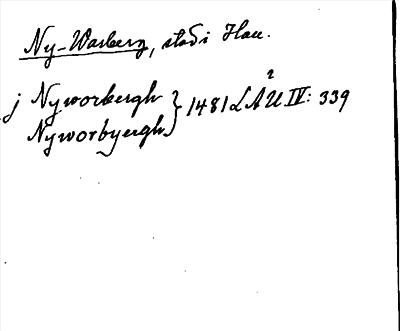 Ny-Warberg, stad i Hall.
j Nyworbergh } 1481 LAU² IV: 339
Nyworbyergh